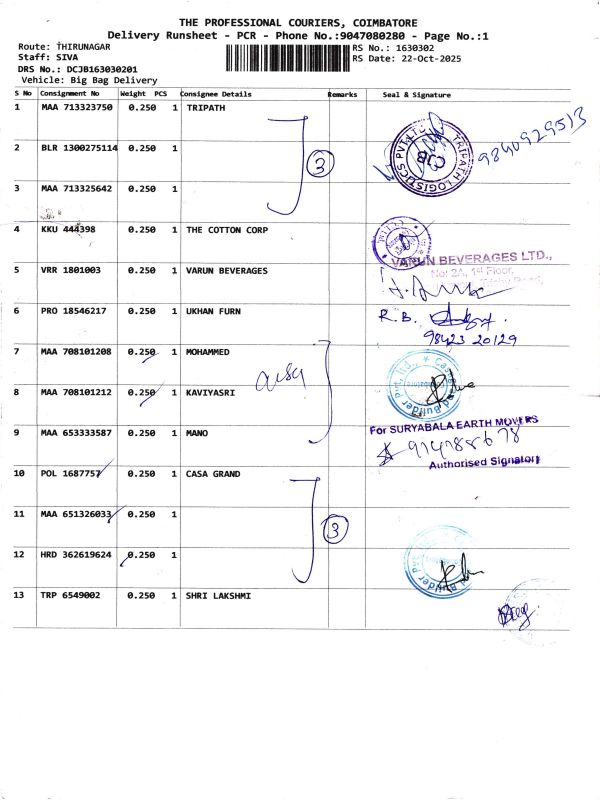 THE PROFESSIONAL COURIERS, COIMBATORE
Delivery Runsheet - PCR - Phone No.:9047080280 - Page No.:1
Route: THIRUNAGAR RS No.: 1630302
Staff: SIVA RS Date: 22-Oct-2025
DRS No.: DCJB163030201
Vehicle: Big Bag Delivery
S No Consignment No Weight PCS Consignee Details Remarks Seal & Signature
1 MAA 713323750 0.250 1 TRIPATH
2 BLR 1300275114 0.250 1
3 MAA 713325642 0.250 1
3
TRIPATH LOGISTICS PVT LTD
CJB
9840929513
4 KKU 444398 0.250 1 THE COTTON CORP
5 VRR 1801003 0.250 1 VARUN BEVERAGES
VARUN BEVERAGES LTD.,
No: 2A, 1st Floor,
6 PRO 18546217 0.250 1 UKHAN FURN
R.B.
98423 20129
7 MAA 708101208 0.250 1 MOHAMMED
8 MAA 708101212 0.250 1 KAVIYASRI
9 MAA 653333587 0.250 1 MANO
For SURYABALA EARTH MOVERS
Authorised Signatory
10 POL 1687757 0.250 1 CASA GRAND
11 MAA 651326033 0.250 1
12 HRD 362619624 0.250 1
3
13 TRP 6549002 0.250 1 SHRI LAKSHMI